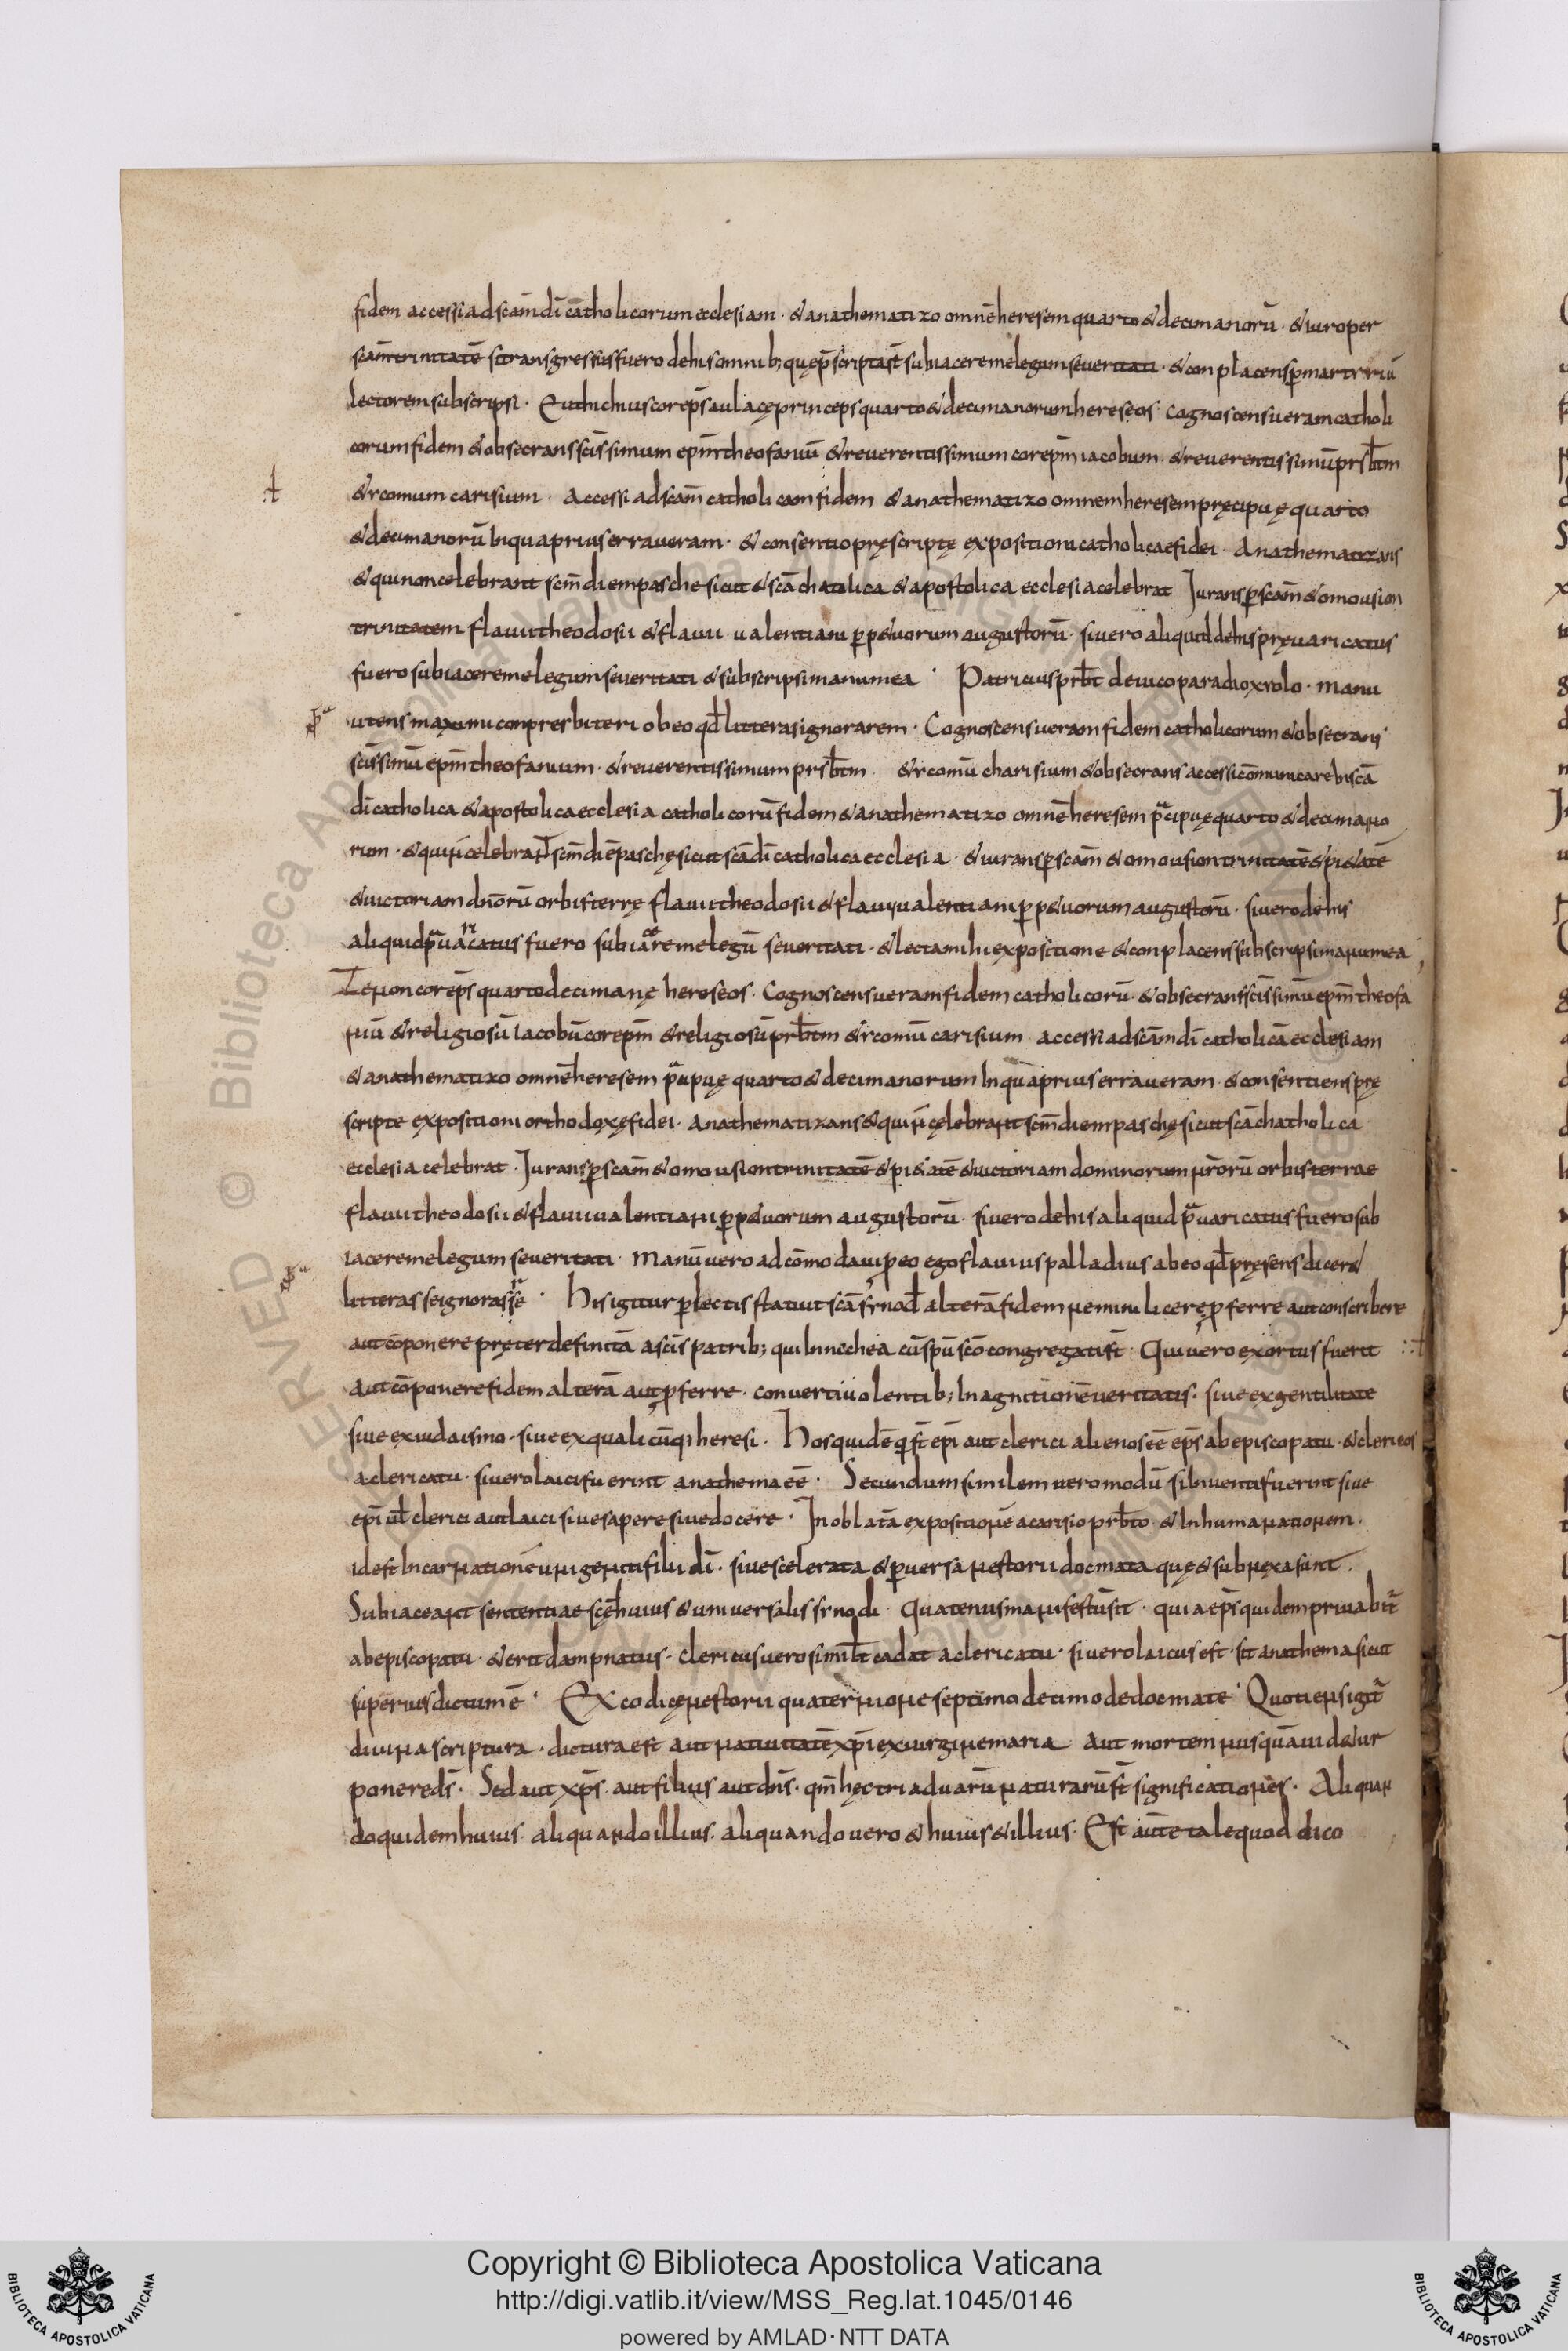 fidem accessi ad scam̄ dī catholicorum ecclesiam · & anathematizo omnē heresem quarto & decimanorū · & iuro per
scam̄ trinitatē si transgressus fuero de his omnib; quę p̄scripta s̄t subiacere me legum severitati · & conplacens ꝑ martyriū
lectorem subscripsi · Euthichius corep̄s aulacę princeps quarto & decimanorum hereseos · cognoscens veram catholi
corum fidem & obsecrans scīssimum ep̄m theofaniū & reverentissimum corep̄m iacobum & reverentissimū prsb̄tm
& yconum carisium · Accessi ad scam̄ catholicam fidem & anathematizo omnem heresem pręcipuę quarto
& decimanorū in qua prius erraveram · & consentio pręscriptę expositioni catholicae fidei · Anathematizans
& qui non celebrant scm̄ diem pasche sicut & scā chatolica & apostolica ecclesia celebrat Iurans ꝑ scam̄ & omousion
trinitatem flavii theodosii & flavii valentiani ꝑp&uorum augustorū · si vero aliquid de his pręvaricatus
fuero subiacere me legum severitati & subscripsi manu mea · Patricius prb̄t de vico paradioxylo · manu
utens maximi conpresbiteri ob eo qd̄ litteras ignorarem · Cognoscens veram fidem catholicorum & obsecrans
scīssimū ep̄m theofanium · & reverentissimum prsb̄tm & yconū charisium & obsecrans accessi cōmunicare in scā
dī catholica & apostolica ecclesia catholicorū fidem & anathematizo omnē heresem p̄cipuę quarto & decimano
rum · & qui n̄ celebrant scm̄ diē paschę sicut scā dī catholica ecclesia · & iurans ꝑ scam̄ & omousion trinitatē & pi&atē
& victoriam dnōrū orbis terrę flavii theodosii & flavii valentiani ꝑp&uorum augustorū · si vero de his
aliquid p̄varicatus fuero subiacere me legū severitati · & lecta mihi expositione & conplacens subscripsi manu mea
Zenon corep̄s quartodecimanę hereseos · Cognoscens veram fidem catholicorū · & obsecrans scīssimū ep̄m theofa
niū & religiosū iacobū corep̄m & religiosū prb̄tm & yconū carisium accessi ad scām dī catholicā ecclesiam
& anathematizo omnē heresem p̄cipuę quarto & decimanorum in qua prius erraveram · & consentiens prę
scripte expositioni orthodoxę fidei · Anathematizans & qui n̄ cęlebrant scm̄ diem paschę sicut scā chatholica
ecclesia celebrat · Iurans ꝑ scam̄ & omousion trinitatē & pi&atē & victoriam dominorum nr̄orū orbis terrae
flavii theodosii & flavii valentiani ꝑp&uorum augustorū · si vero de his aliquid p̄varicatus fuero sub
iacere me legum severitati · Manū vero adcōmodavi ꝑ eo ego flavius palladius ab eo qd̄ pręsens dicer&
litteras se ignorasse · His igitur ꝑlectis statuit scā synod̄ alterā fidem nemini licere ꝓferre aut conscribere
aut cōponere pręter definitā a scīs patrib; qui in nichea cū spū scō congregati s̄t · Qui vero exortus fuerit
aut cōponere fidem alterā aut ꝓferre · converti volentib; in agnitionē veritatis · sive ex gentilitate
sive ex iudaismo · sive ex qualicūq; heresi · Hos quidē qi s̄t ep̄i aut clerici alienos eē ep̄s ab episcopatu · & clericos
a clericatu · si vero laici fuerint anathema eē · Secundum similem vero modū si inventi fuerint sive
ep̄i vl̄ clerici aut laici sive sapere sive docere · In oblatā expositionē a carisio prb̄to · & inhumanationem ·
id est incarnationē unigeniti filii dī · sive scelerata & ꝑversa nestorii docmata quę & subnexa sunt ·
Subiaceant sententiae scę huius & universalis synodi · Quatenus manifestū sit · quia ep̄s quidem privabit̄
ab episcopatu · & erit dampnatus · clericus vero simil̄t cadat a clericatu · si vero laicus est · sit anathema sicut
superius dictum ē · Ex codicę nestorii quaternione septimo decimo de docmate · Quotiens igit̄
divina scriptura · dictura est aut nativitatē xp̄i ex virgine maria aut mortem nusquā vid&ur
ponere ds̄ · Sed aut xp̄s aut filius aut dn̄s · qm̄ hęc tria duarū naturarū s̄t significationes · Aliquan
do quidem huius · aliquando illius · aliquando vero & huius & illius · Est autē tale quod dico
Copyright © Biblioteca Apostolica Vaticana
http://digi.vatlib.it/view/MSS_Reg.lat.1045/0146
powered by AMLAD·NTT DATA
BIBLIOTECA APOSTOLICA VATICANA
BIBLIOTECA APOSTOLICA VATICANA